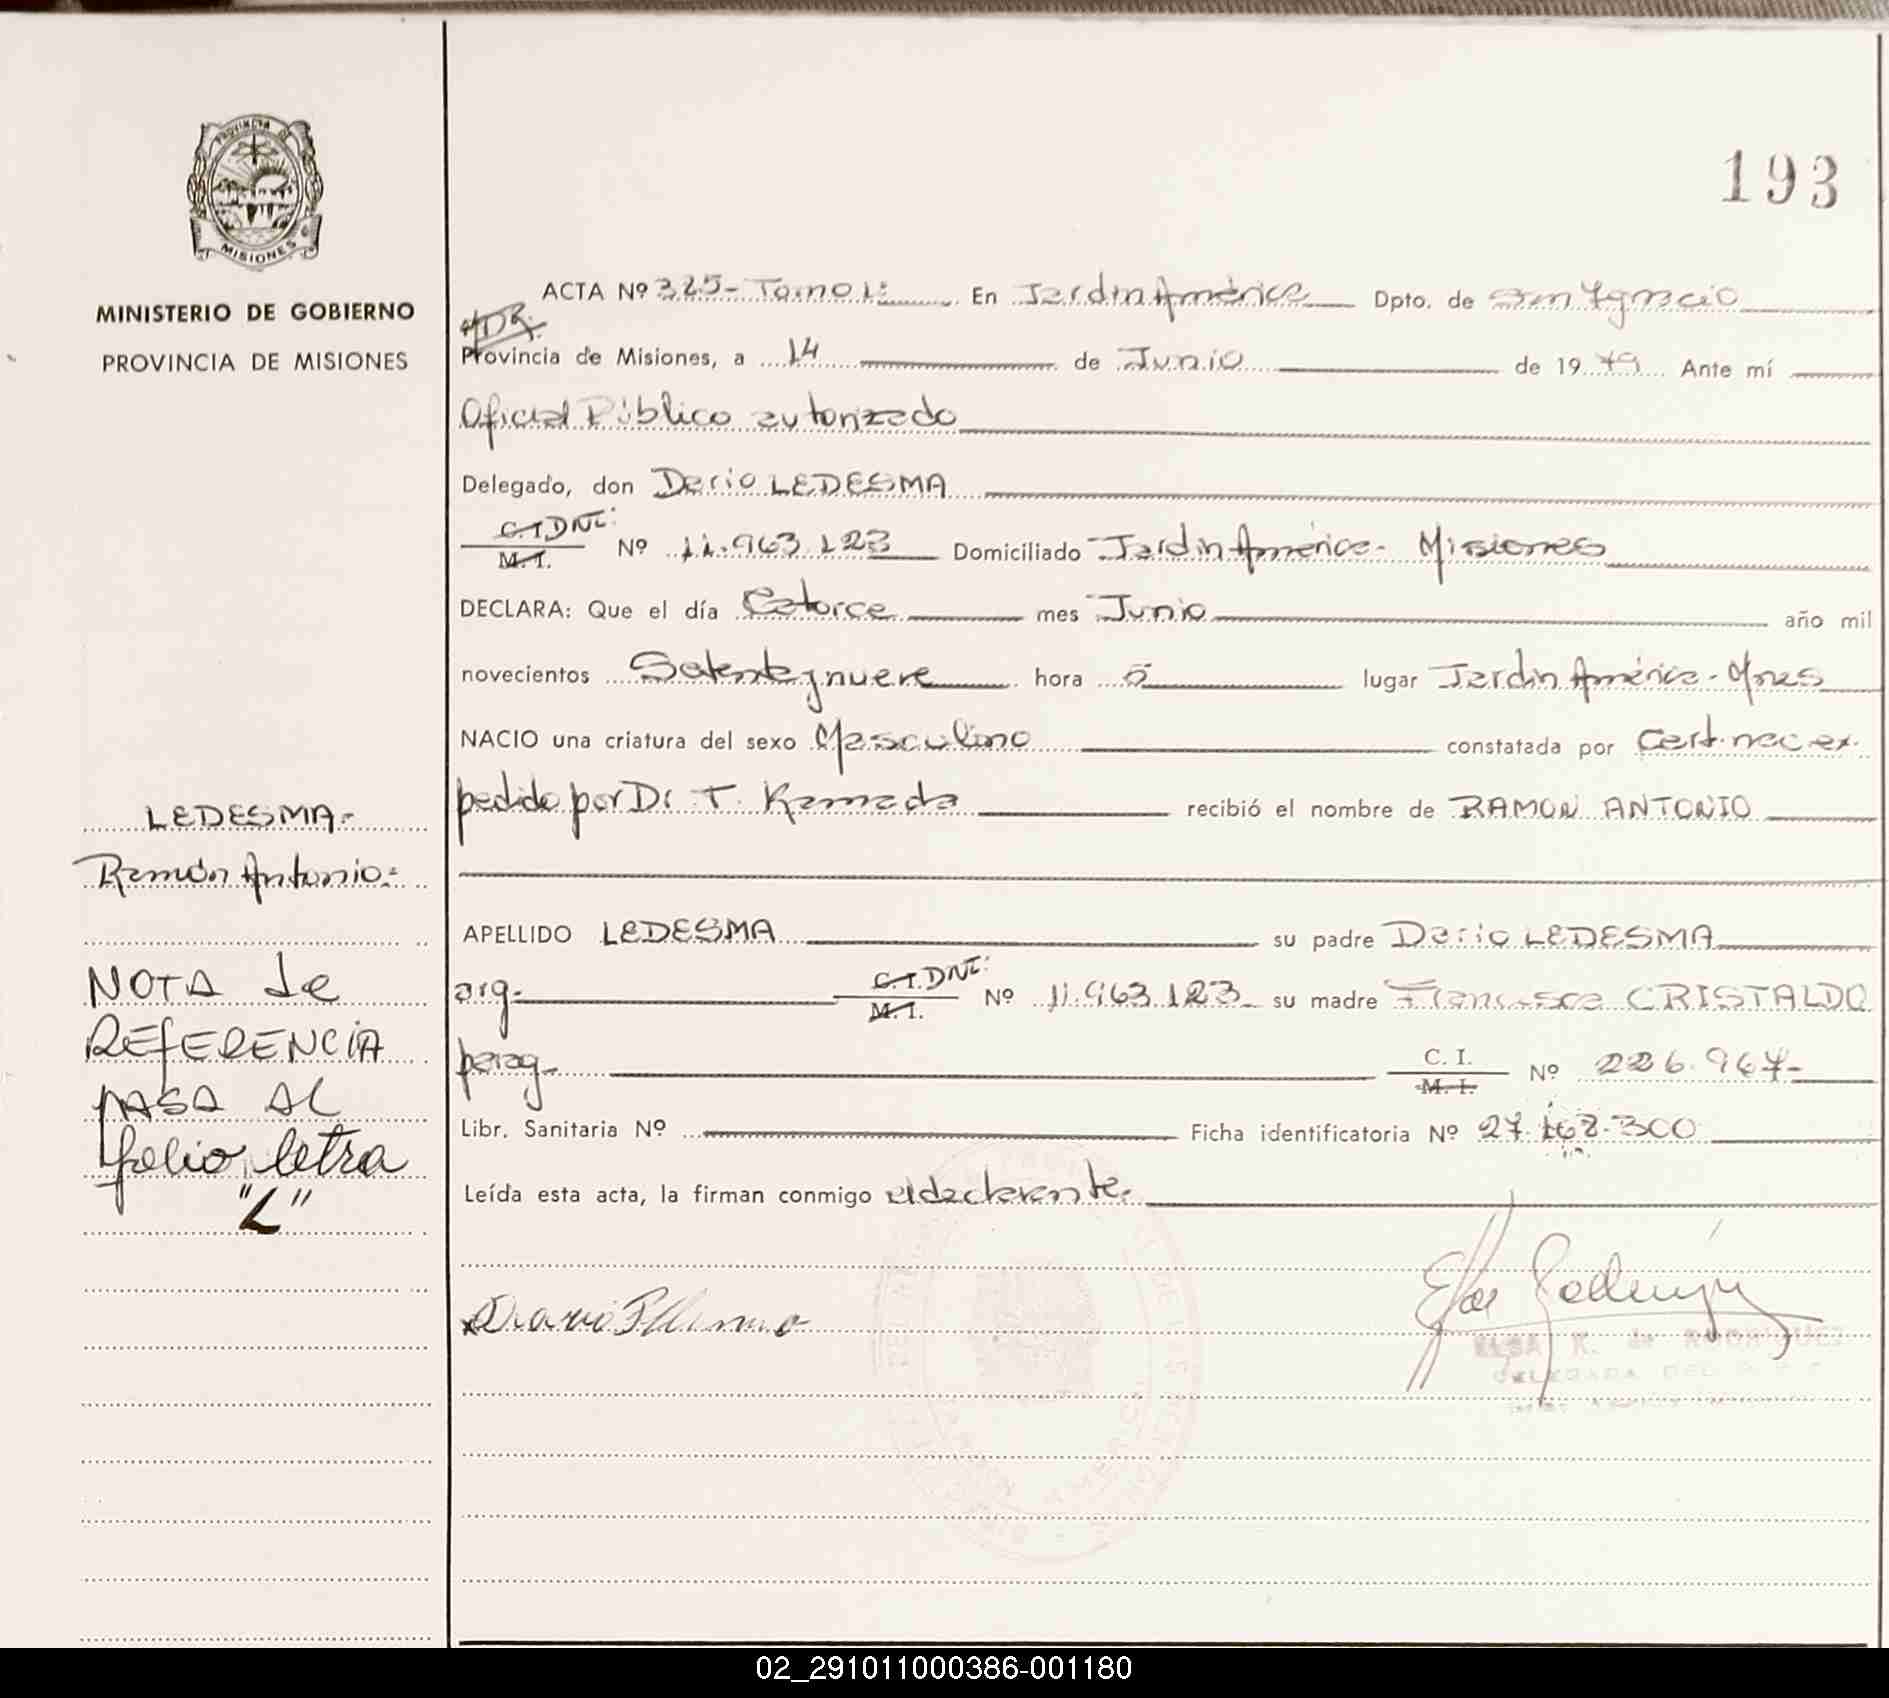 193
PROVINCIA DE
MISIONES
MINISTERIO DE GOBIERNO
PROVINCIA DE MISIONES
ACTA Nº 325- Tomo 1º En Jardin América Dpto. de San Ignacio
Provincia de Misiones, a 14 de Junio de 1979 Ante mí
Oficial Público autorizado
Delegado, don Dario LEDESMA
C.I. DNI:
M. I. Nº 11.963.123 Domiciliado Jardin América- Misiones
DECLARA: Que el día Catorce mes Junio año mil
novecientos Setenta y nueve hora 5 lugar Jardin América- Mnes
NACIO una criatura del sexo Masculino constatada por Cert. nac. ex-
pedido por Dr. T. Kamada recibió el nombre de RAMON ANTONIO
APELLIDO LEDESMA su padre Dario LEDESMA
arg- C.I. DNI:
M. I. Nº 11.963.123- su madre Francisca CRISTALDO
parag- C. I.
M. I. Nº 226.967-
Libr. Sanitaria Nº Ficha identificatoria Nº 27.168.300
Leída esta acta, la firman conmigo el declarante.
ELSA K. de RODRIGUEZ
DELEGADA DEL
LEDESMA-
Ramón Antonio:
NOTA de
REFERENCIA
PASA AL
folio letra
"L"
02_291011000386-001180